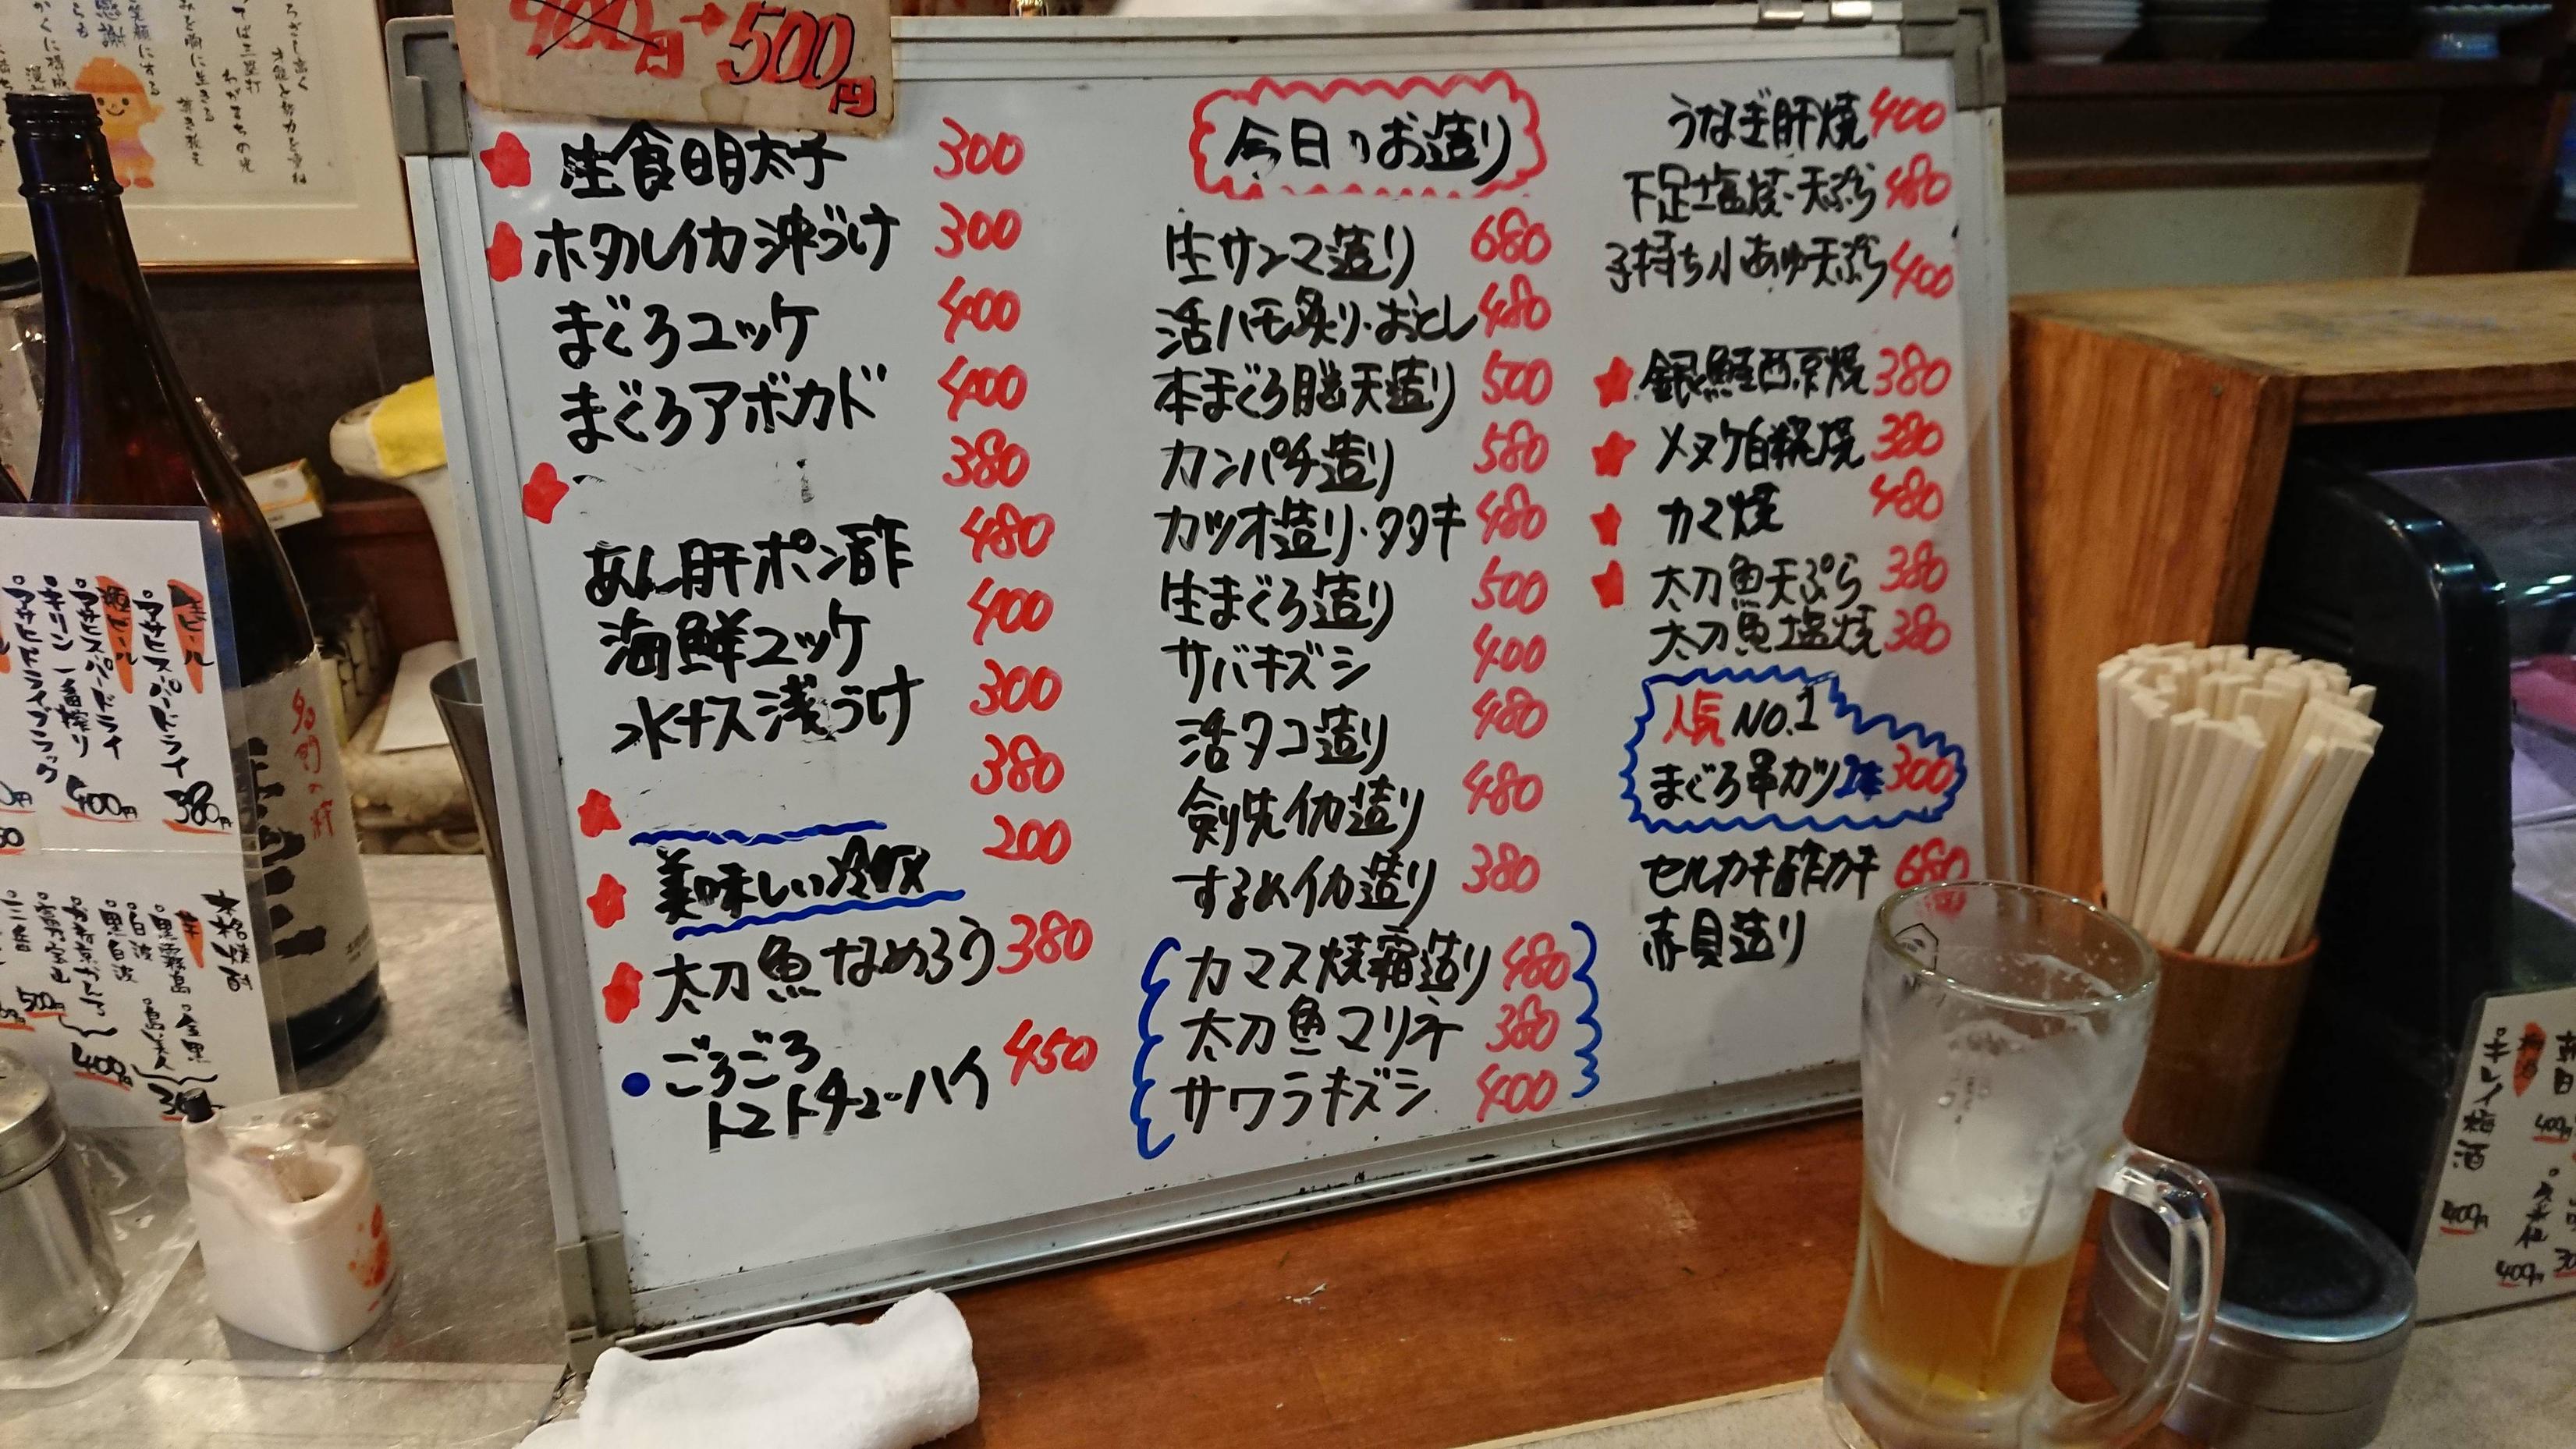 400円→500円
生食明太子 300
ホタルイカ沖づけ 300
まぐろユッケ 400
まぐろアボカド 400
380
あん肝ポン酢 480
海鮮ユッケ 400
水ナス浅づけ 300
380
美味しい冷奴 200
太刀魚なめろう 380
ごろごろ
トマトチューハイ 450
今日のお造り
生サンマ造り 680
活ハモ炙り・おとし 480
本まぐろ脳天造り 500
カンパチ造り 580
カツオ造り・タタキ 480
生まぐろ造り 500
サバキズシ 400
活タコ造り 480
剣先イカ造り 480
するめイカ造り 380
カマス焼霜造り 480
太刀魚マリネ 380
サワラキズシ 400
うなぎ肝焼 400
下足塩焼・天ぷら 480
子持ち小あゆ天ぷら 400
銀鮭西京焼 380
メヌケ白糀焼 380
カマ焼 480
太刀魚天ぷら 380
太刀魚塩焼 380
人気NO.1
まぐろ串カツ2本300
セルカキ酢カキ 680
赤貝造り
生ビール
アサヒスーパードライ 380円
瓶ビール
アサヒスーパードライ
キリン一番搾り 400円
アサヒドライブラック
本格焼酎
芋
黒霧島
白波
黒白波
島美人
金黒
400円
キレイ梅酒 400円